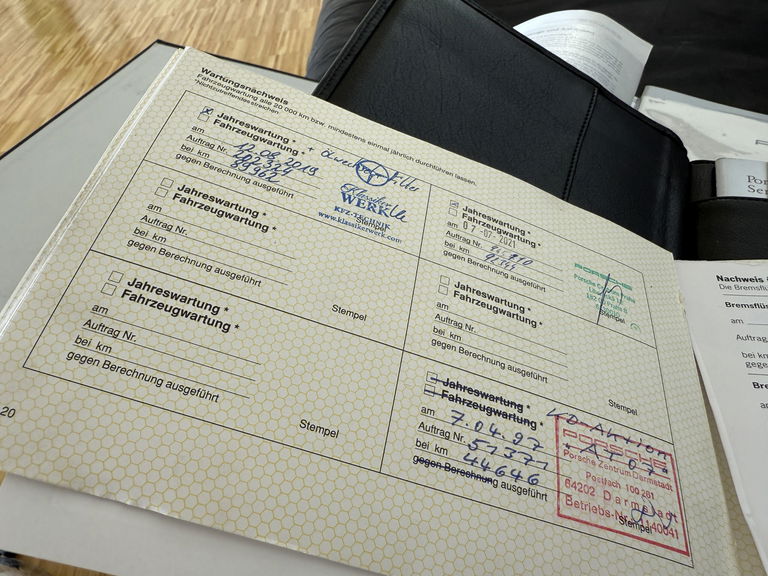 Wartungsnachweis
Fahrzeugwartung alle 20 000 km bzw. mindestens einmal jährlich durchführen lassen.
*Nichtzutreffendes streichen
Jahreswartung *
Fahrzeugwartung *
am 12.08.2019
Auftrag Nr. 202324
bei km 89962
gegen Berechnung ausgeführt
Klassiker
WERK
KFZ-TECHNIK
Stempel
www.klassikerwerk.com
Jahreswartung *
Fahrzeugwartung *
am
Auftrag Nr.
bei km
gegen Berechnung ausgeführt
Stempel
Jahreswartung *
Fahrzeugwartung *
am
Auftrag Nr.
bei km
gegen Berechnung ausgeführt
Stempel
20
Jahreswartung *
Fahrzeugwartung *
am 07-07-2021
Auftrag Nr.
bei km
gegen Berechnung ausgeführt
PORSCHE
Stempel
Jahreswartung *
Fahrzeugwartung *
am
Auftrag Nr.
bei km
gegen Berechnung ausgeführt
Stempel
Jahreswartung *
Fahrzeugwartung *
am 7.04.97
Auftrag Nr. 51371
bei km 44646
gegen Berechnung ausgeführt
KD-Aktion
PORSCHE
Porsche Zentrum Darmstadt
Postfach 100261
64202 Darmstadt
Betriebs-Nr. 1140041
Stempel
Por
Ser
Nachweis
Die Bremsflü
Bremsflüs
am
Auftrag
bei km
gege
Bre